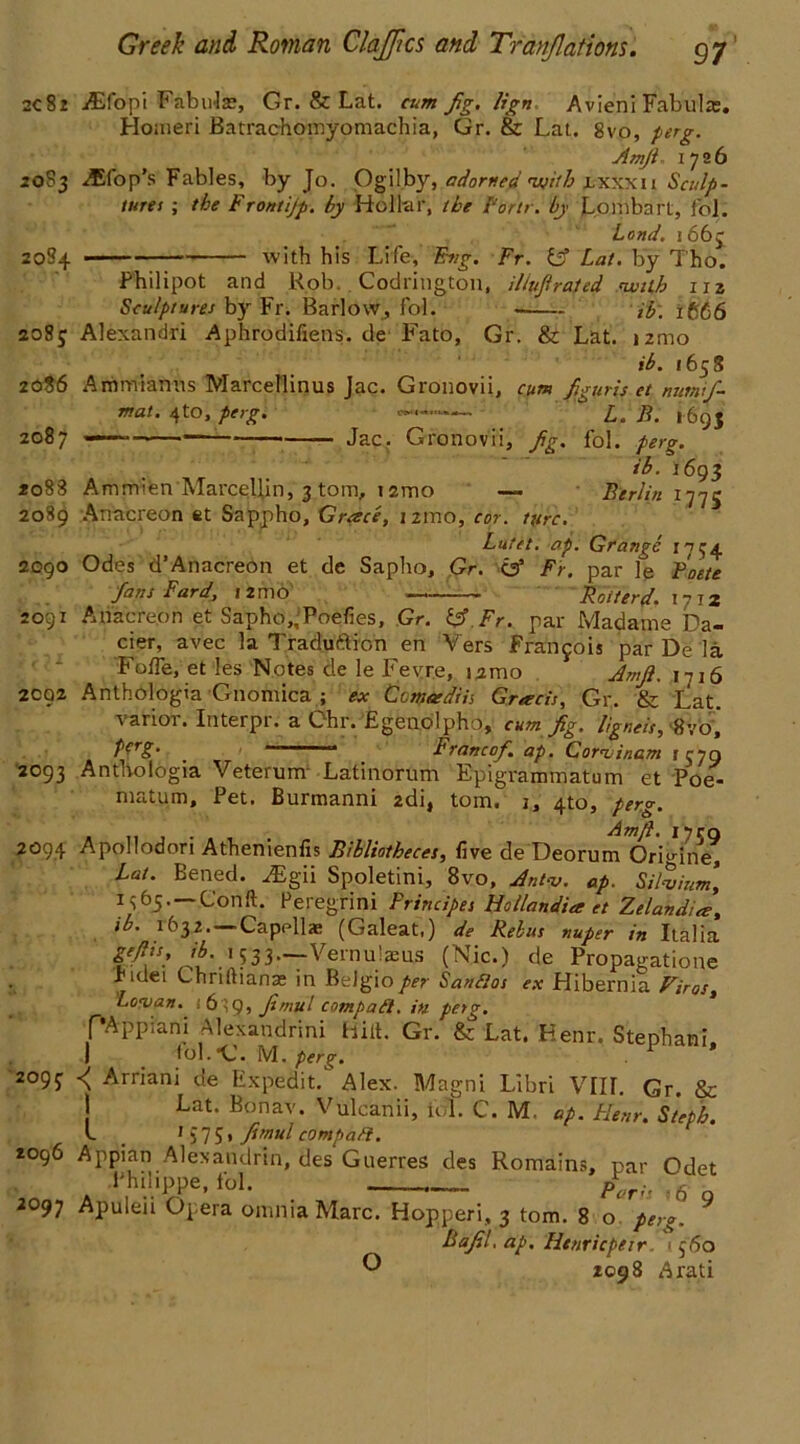 Greek and Roman Claſſics and Tranſlations. 97
2082 Æſopi Fabulæ, Gr. & Lat. cum fig. lign. Avieni Fabulæ.
Homeri Batrachomyomachia, Gr. & Lat. 8vo, perg.
Amſt. 1726
2083 Æſop's Fables, by Jo. Ogilby, adorned with LXXXII Sculp-
tures ; the Frontiſp. by Hollar, the Portr. by Lombart, fol.
Lond. 1665
2084 ——— with his Life, Eng. Fr. & Lat. by Tho.
Philipot and Rob. Codrington, illuſtrated with 112
Sculptures by Fr. Barlow, fol. —— ib. 1666
2085 Alexandri Aphrodiſiens. de Fato, Gr. & Lat. 12mo
ib. 1658
2086 Ammianus Marcellinus Jac. Gronovii, cum figuris et numiſ-
mat. 4to, perg. —— L. B. 1693
2087 ——— Jac. Gronovii, fig. fol. perg.
ib. 1693
2088 Ammien Marcellin, 3 tom, 12mo — Berlin 1775
2089 Anacreon et Sappho, Græcé, 12mo, cor. turc.
Lutet. ap. Grangé 1754
2090 Odes d'Anacreon et de Sapho, Gr. & Fr. par le Poete
ſans Fard, 12mo —— Rotterd. 1712
2091 Anacreon et Sapho, Poeſies, Gr. & Fr. par Madame Da-
cier, avec la Traduction en Vers François par De la
Foſſe, et les Notes de le Fevre, 12mo Amſt. 1716
2092 Anthologia Gnomica ; ex Comœdiis Græcis, Gr. & Lat.
varior. Interpr. a Chr. Egenolpho, cum fig. ligneis, 8vo,
perg. —— Francof. ap. Corvinam 1579
2093 Anthologia Veterum Latinorum Epigrammatum et Poe-
matum, Pet. Burmanni 2di, tom. 1, 4to, perg.
Amſt. 1759
2094 Apollodori Athenienſis Bibliotheces, ſive de Deorum Origine,
Lat. Bened. Ægii Spoletini, 8vo, Antv. ap. Silvium,
1565.—Conſt. Peregrini Principes Hollandiæ et Zelandiæ,
ib. 1632.—Capellæ (Galeat.) de Rebus nuper in Italia
geſtis, ib. 1533.—Vernulæus (Nic.) de Propagatione
Fidei Chriſtianæ in Belgio per Sanctos ex Hibernia Viros,
Lovan. 1639, ſimul compact. in perg.
Appiani Alexandrini Hiſt. Gr. & Lat. Henr. Stephani,
fol. C. M. perg.
2095 Arriani de Expedit. Alex. Magni Libri VIII. Gr. &
Lat. Bonav. Vulcanii, fol. C. M. ap. Henr. Steph.
1575, ſimul compact.
2096 Appian Alexandrin, des Guerres des Romains, par Odet
Philippe, fol. —— Paris 16 9
2097 Apuleii Opera omnia Marc. Hopperi, 3 tom. 8 o perg.
Baſil. ap. Henricpetr. 1560
O 2098 Arati